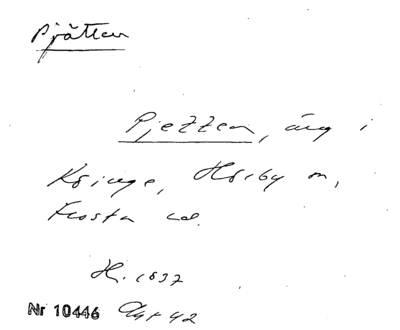 Pjätten
Pjezzen, äng i
Kringe, Hörby sn,
Frosta hd.
H. 1837
Nr 10446 Akt 42